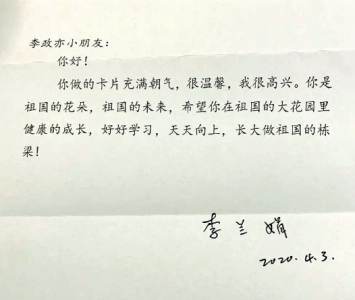 李政亦小朋友：
你好！
你做的卡片充满朝气，很温馨，我很高兴。你是
祖国的花朵，祖国的未来，希望你在祖国的大花园里
健康的成长，好好学习，天天向上，长大做祖国的栋
梁！
李兰娟
2020.4.3.